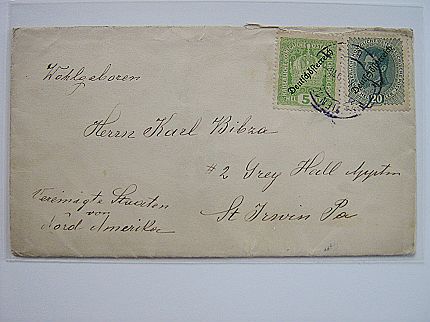 Wohlgeboren
Herrn Karl Bibza
#2 Grey Hall
St Irwin Pa
Vereinigte Staaten
von
Nord Amerika
5
Deutschösterreich
20
Deutschösterreich